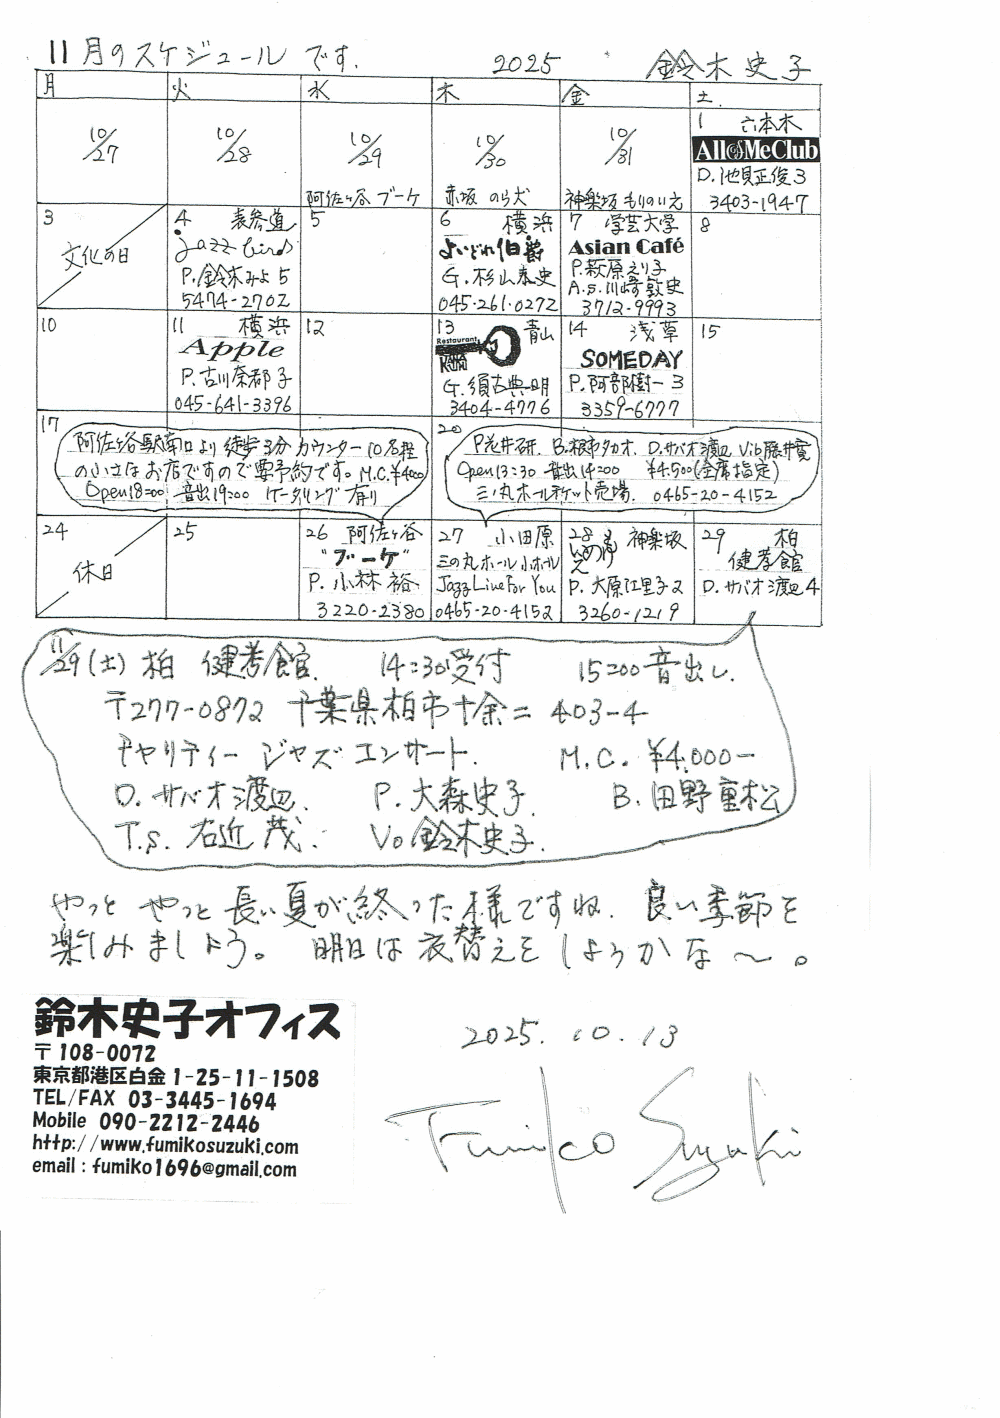 11月のスケジュール です. 2025 鈴木史子
月 火 水 木 金 土.
10/27 10/28 10/29 10/30 10/31
阿佐ヶ谷 ブーケ 赤坂 のら犬 神楽坂 もりのいえ
1 六本木
All of Me Club
D.池貝正俊 3
3403-1947
3
文化の日
4 表参道
jazz bird
P.鈴木みよ 5
5474-2702
5
6 横浜
よいどれ伯爵
G.杉山泰史
045-261-0272
7 学芸大学
Asian Café
P.萩原えり子
A.S.川崎敦史
3712-9993
8
10
11 横浜
Apple
P.古川奈都子
045-641-3396
12
13 青山
Restaurant
G.須古典明
3404-4776
14 浅草
SOMEDAY
P.阿部樹一 3
3359-6777
15
17
阿佐ヶ谷駅南口より徒歩3分 カウンター10名程
の小さなお店ですので要予約です。M.C.¥4000
Open18:00 音出19:00 ケータリング有り
20
P.花井研. B.根市タカオ. D.サバオ渡辺 Vib藤井寛
Open13:30 音出14:00 ¥4,500(全席指定)
三ノ丸ホールチケット売場. 0465-20-4152
24
休日
25
26 阿佐ヶ谷
"ブーケ"
P. 小林 裕
3220-2380
27 小田原
三の丸ホール小ホール
Jazz Live For You
0465-20-4152
28 もりのいえ 神楽坂
P. 大原江里子 2
3260-1219
29 柏
健孝館
D.サバオ渡辺 4
11/29(土) 柏 健孝館. 14:30受付 15:00音出し.
〒277-0872 千葉県柏市十余二 403-4
チャリティー ジャズ コンサート. M.C. ¥4,000-
D.サバオ渡辺. P.大森史子. B.田野重松
T.S. 右近 茂. Vo 鈴木史子.
やっと やっと 長い夏が終った様ですね. 良い季節を
楽しみましょう。 明日は衣替えをしようかな〜。
2025.10.13
Fumiko Suzuki
鈴木史子オフィス
〒108-0072
東京都港区白金1-25-11-1508
TEL/FAX 03-3445-1694
Mobile 090-2212-2446
http://www.fumikosuzuki.com
email:fumiko1696@gmail.com